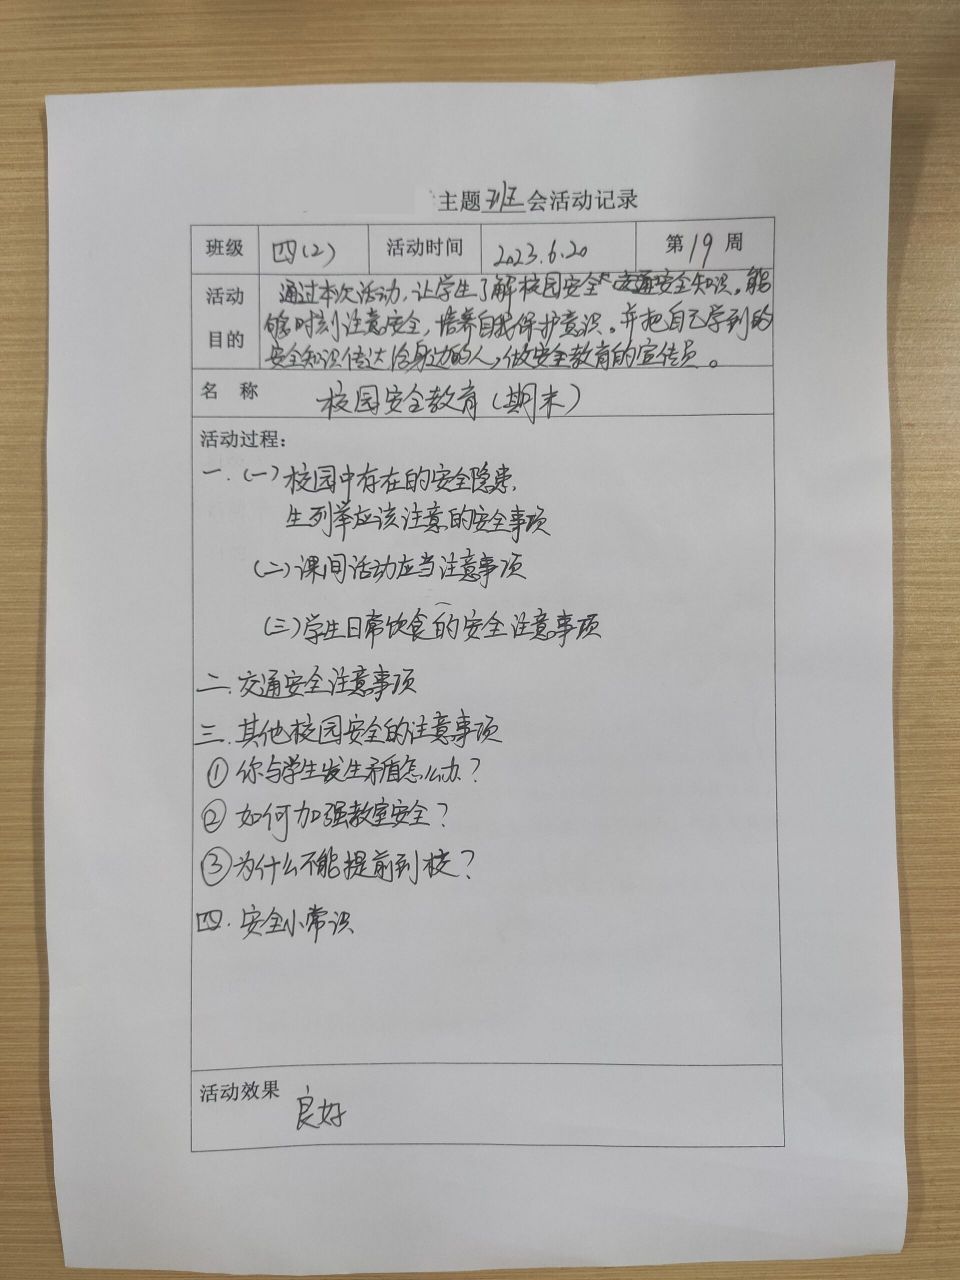 主题班会活动记录
班级 四(2) 活动时间 2023.6.20 第19周
活动目的 通过本次活动,让学生了解校园安全 交通安全知识。能
够时刻注意安全,培养自我保护意识。并把自己学到的
安全知识传达给身边的人,做安全教育的宣传员。
名 称 校园安全教育(期末)
活动过程:
一.(一)校园中存在的安全隐患,
生列举应该注意的安全事项
(二)课间活动应当注意事项
(三)学生日常饮食的安全注意事项
二.交通安全注意事项
三.其他校园安全的注意事项
①你与学生发生矛盾怎么办?
②如何加强教室安全?
③为什么不能提前到校?
四.安全小常识
活动效果 良好